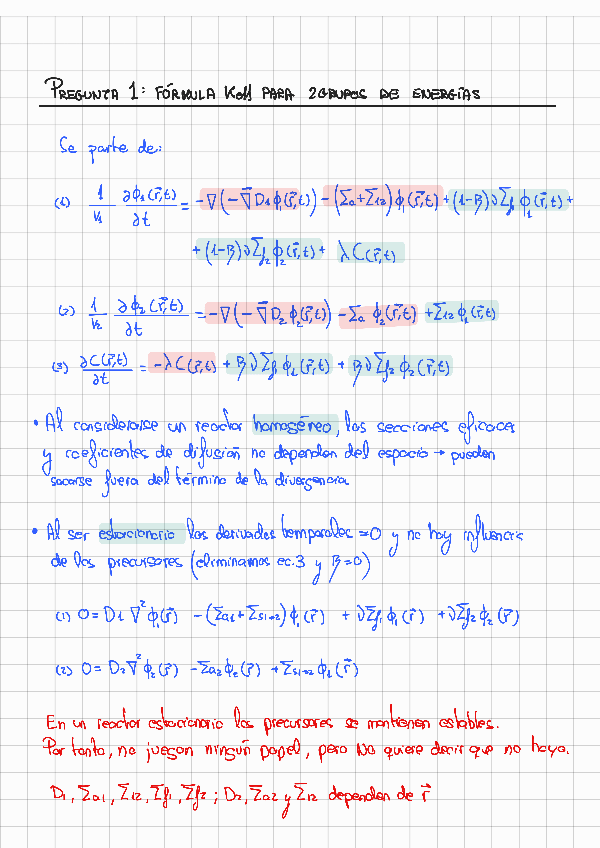 PREGUNTA 1: FÓRMULA Keff PARA 2 GRUPOS DE ENERGÍAS
Se parte de:
(1) 1/v₁ ∂ϕ₁(r⃗,t)/∂t = -∇(-∇⃗D₁ϕ₁(r⃗,t)) - (Σa+Σ₁₂)ϕ₁(r⃗,t) + (1-β)νΣf₁ϕ₁(r⃗,t) +
+ (1-β)νΣf₂ϕ₂(r⃗,t) + λC(r⃗,t)
(2) 1/v₂ ∂ϕ₂(r⃗,t)/∂t = -∇(-∇⃗D₂ϕ₂(r⃗,t)) - Σa ϕ₂(r⃗,t) + Σ₁₂ϕ₁(r⃗,t)
(3) ∂C(r⃗,t)/∂t = -λC(r⃗,t) + βνΣf₁ϕ₁(r⃗,t) + βνΣf₂ϕ₂(r⃗,t)
• Al considerarse un reactor homogéneo, las secciones eficaces
y coeficientes de difusión no dependen del espacio → pueden
sacarse fuera del término de la divergencia
• Al ser estacionario las derivadas temporales =0 y no hay influencia
de los precursores (eliminamos ec.3 y β=0)
(1) 0 = D₁∇²ϕ₁(r⃗) - (Σa₁+Σs₁→₂)ϕ₁(r⃗) + νΣf₁ϕ₁(r⃗) + νΣf₂ϕ₂(r⃗)
(2) 0 = D₂∇²ϕ₂(r⃗) - Σa₂ϕ₂(r⃗) + Σs₁→₂ϕ₁(r⃗)
En un reactor estacionario los precursores se mantienen estables.
Por tanto, no juegan ningún papel, pero NO quiere decir que no haya.
D₁, Σa₁, Σ₁₂, Σf₁, Σf₂; D₂, Σa₂ y Σ₁₂ dependen de r⃗